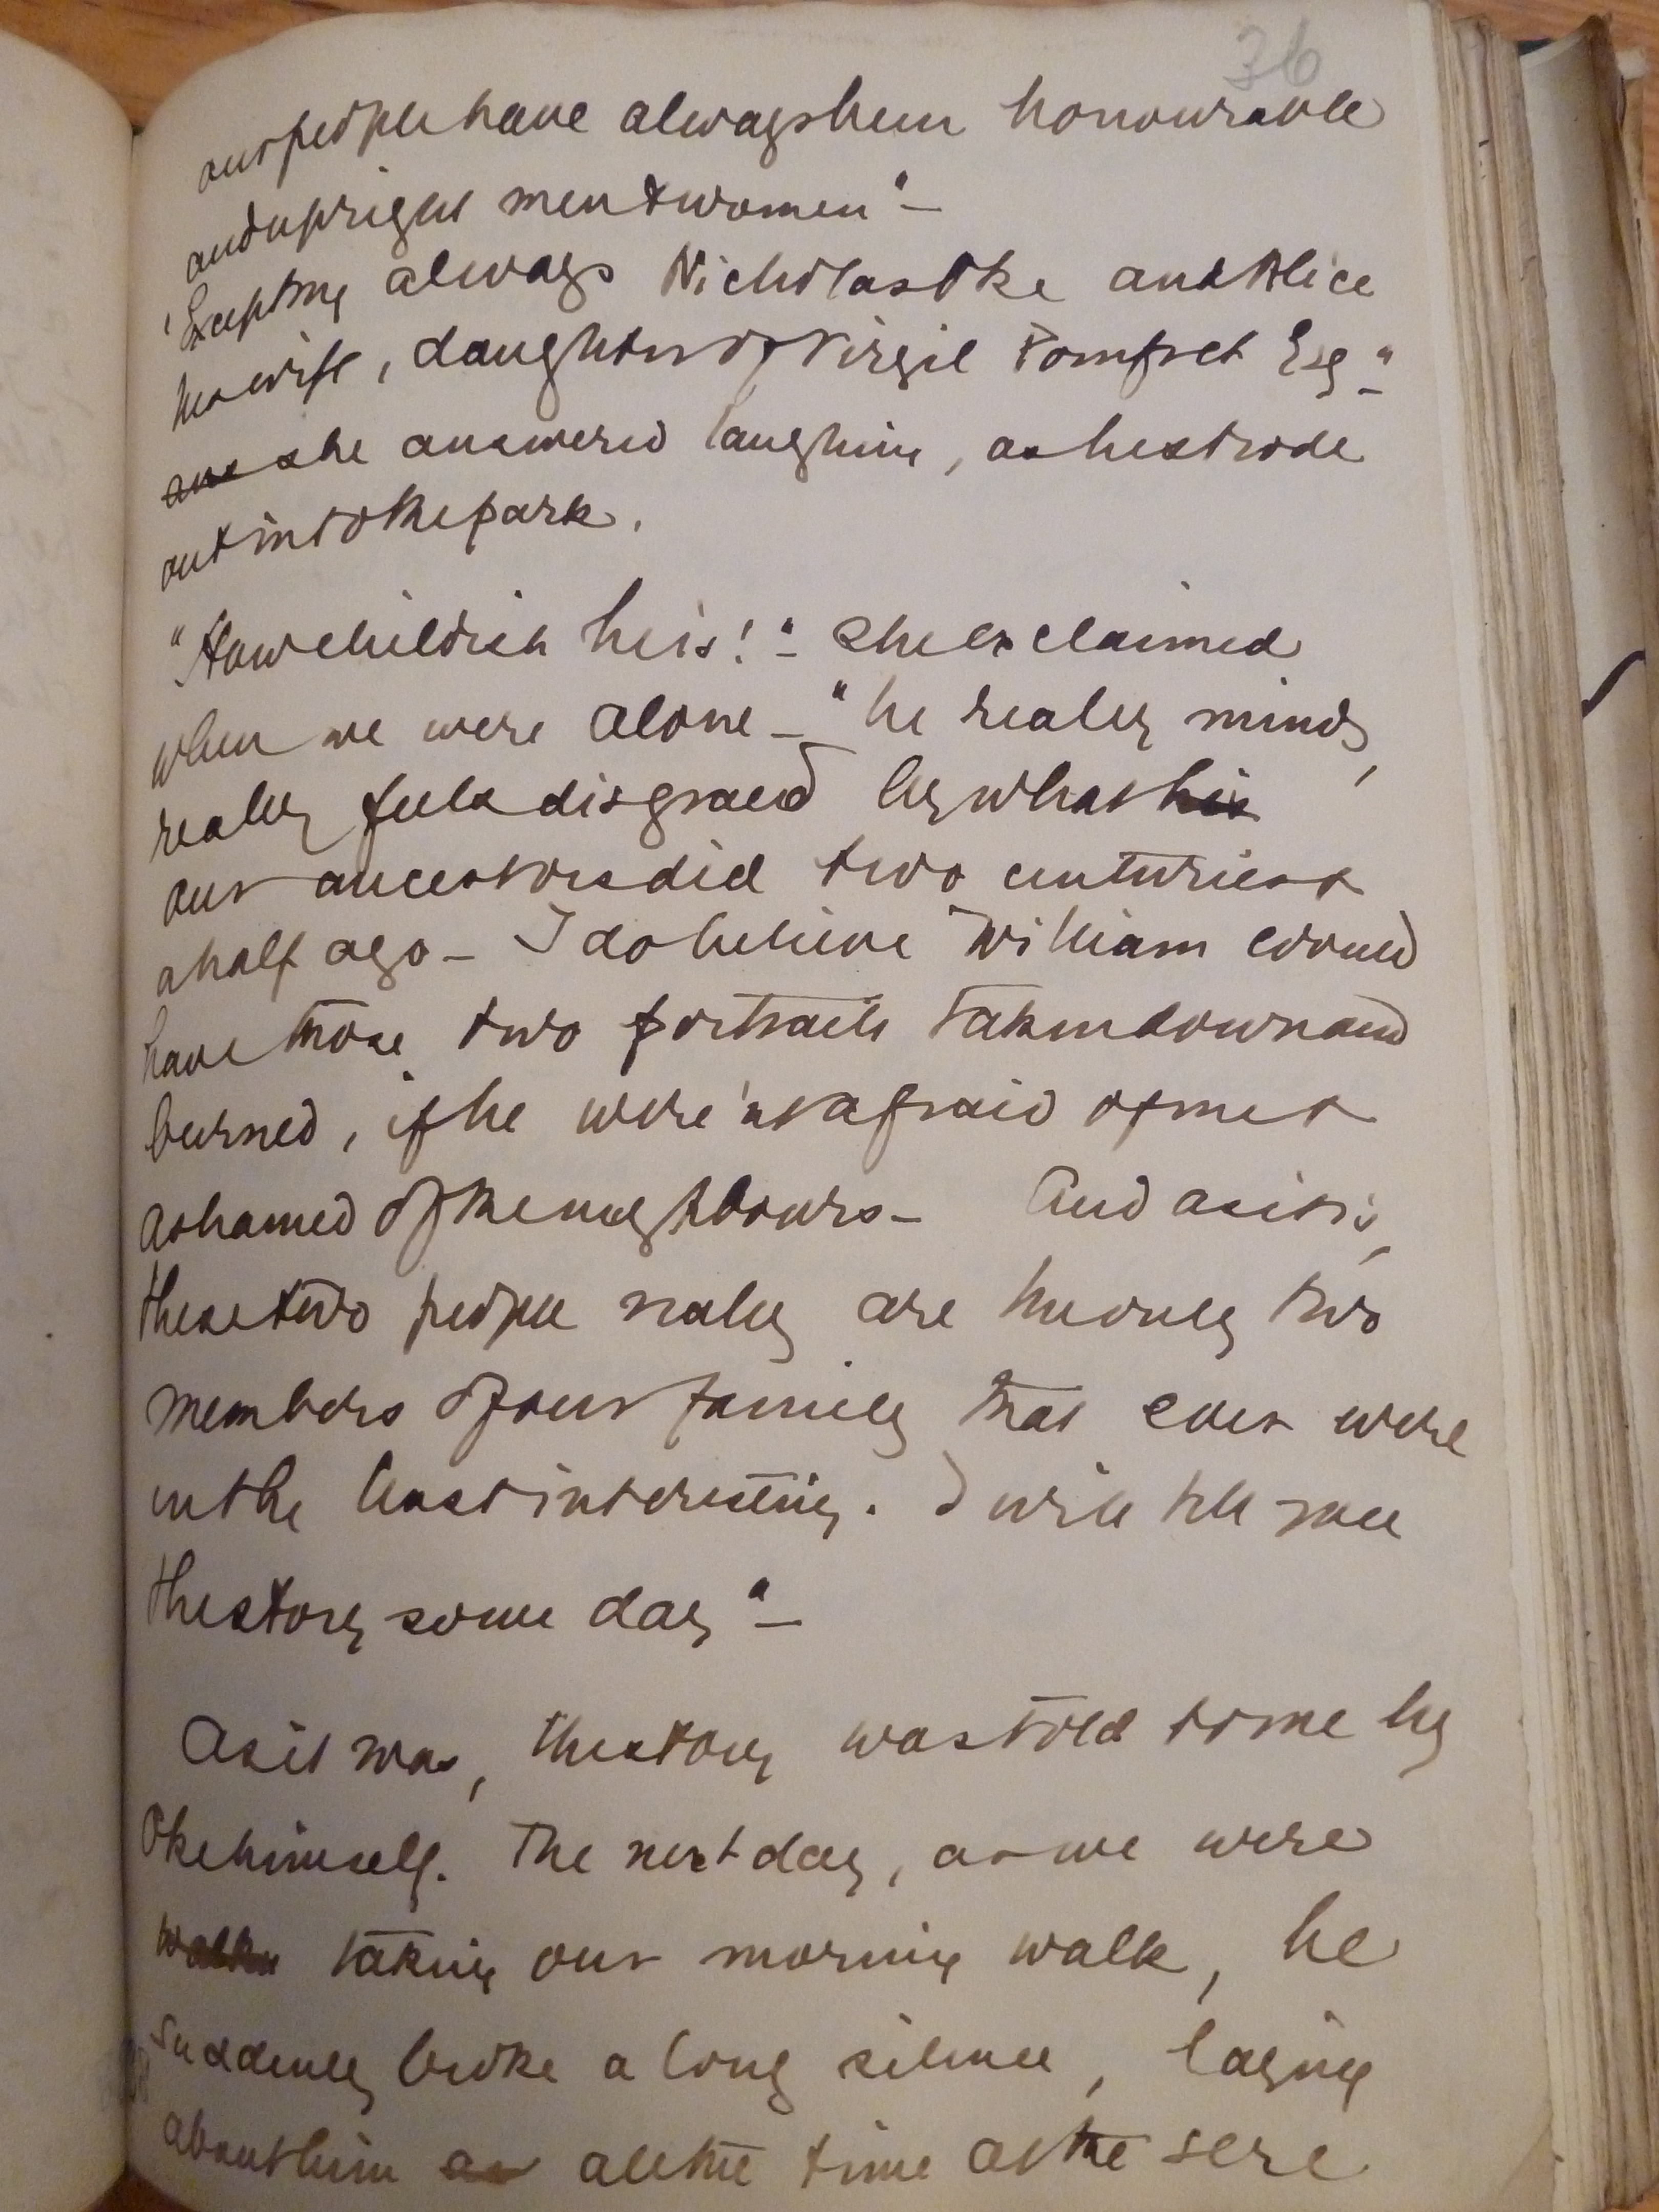 36
our people have always been honourable
and upright men & women" –
'Excepting always Nicholas Oke and Alice
his wife, daughter of Virgil Pomfret Esq" –
ans she answered laughing, as he strode
out into the park.
"How childish he is!" – she exclaimed
when we were alone – "he really minds,
really feels disgraced by what his
our ancestors did two centuries &
a half ago – I do believe William would
have those two portraits taken down and
burned, if he were'nt afraid of me &
ashamed of the neighbours – And as it is,
these two people really are the only two
members of our family that ever were
in the least interesting. I will tell you
the story some day" –
As it was, the story was told to me by
Oke himself. The next day, as we were
walkin taking our morning walk, he
suddenly broke a long silence, laying
about him as all the time at the sere